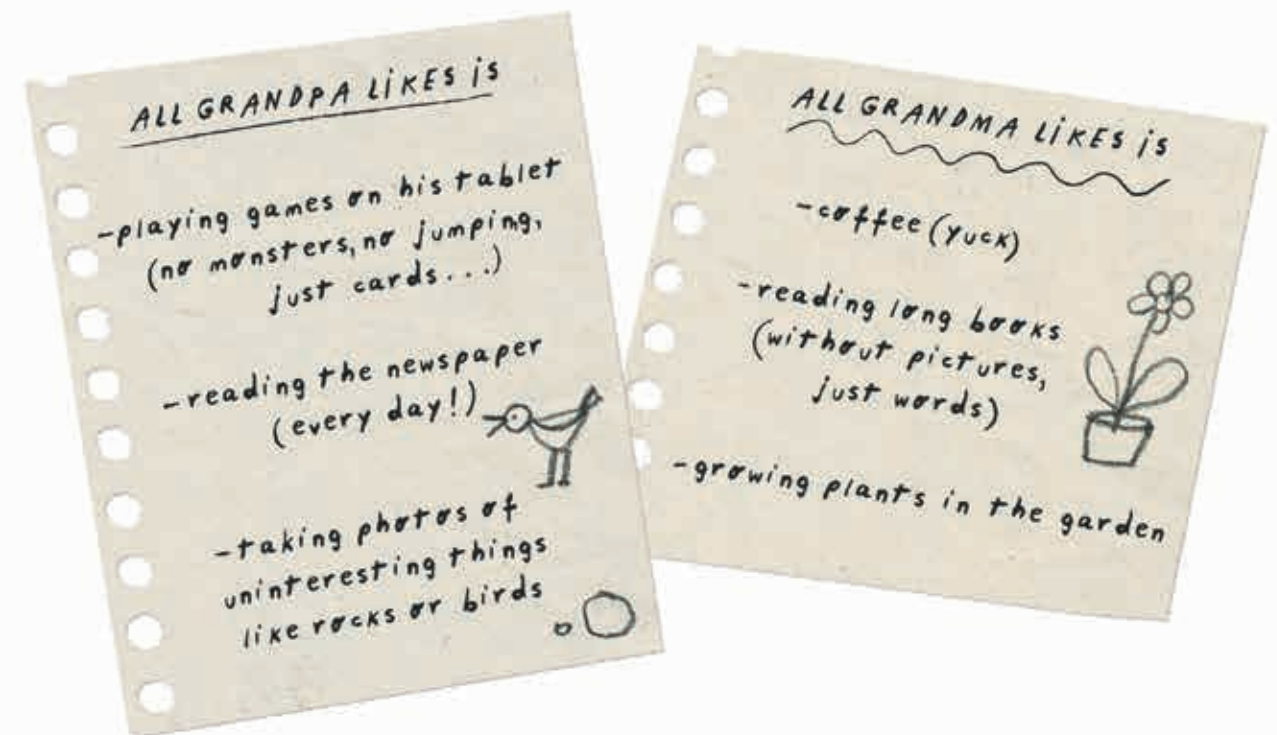 ALL GRANDPA LiKES is
-playing games on his tablet
(no monsters, no jumping,
just cards...)
-reading the newspaper
(every day!)
-taking photos of
uninteresting things
like rocks or birds
ALL GRANDMA LiKES is
-coffee (yuck)
-reading long books
(without pictures,
just words)
-growing plants in the garden